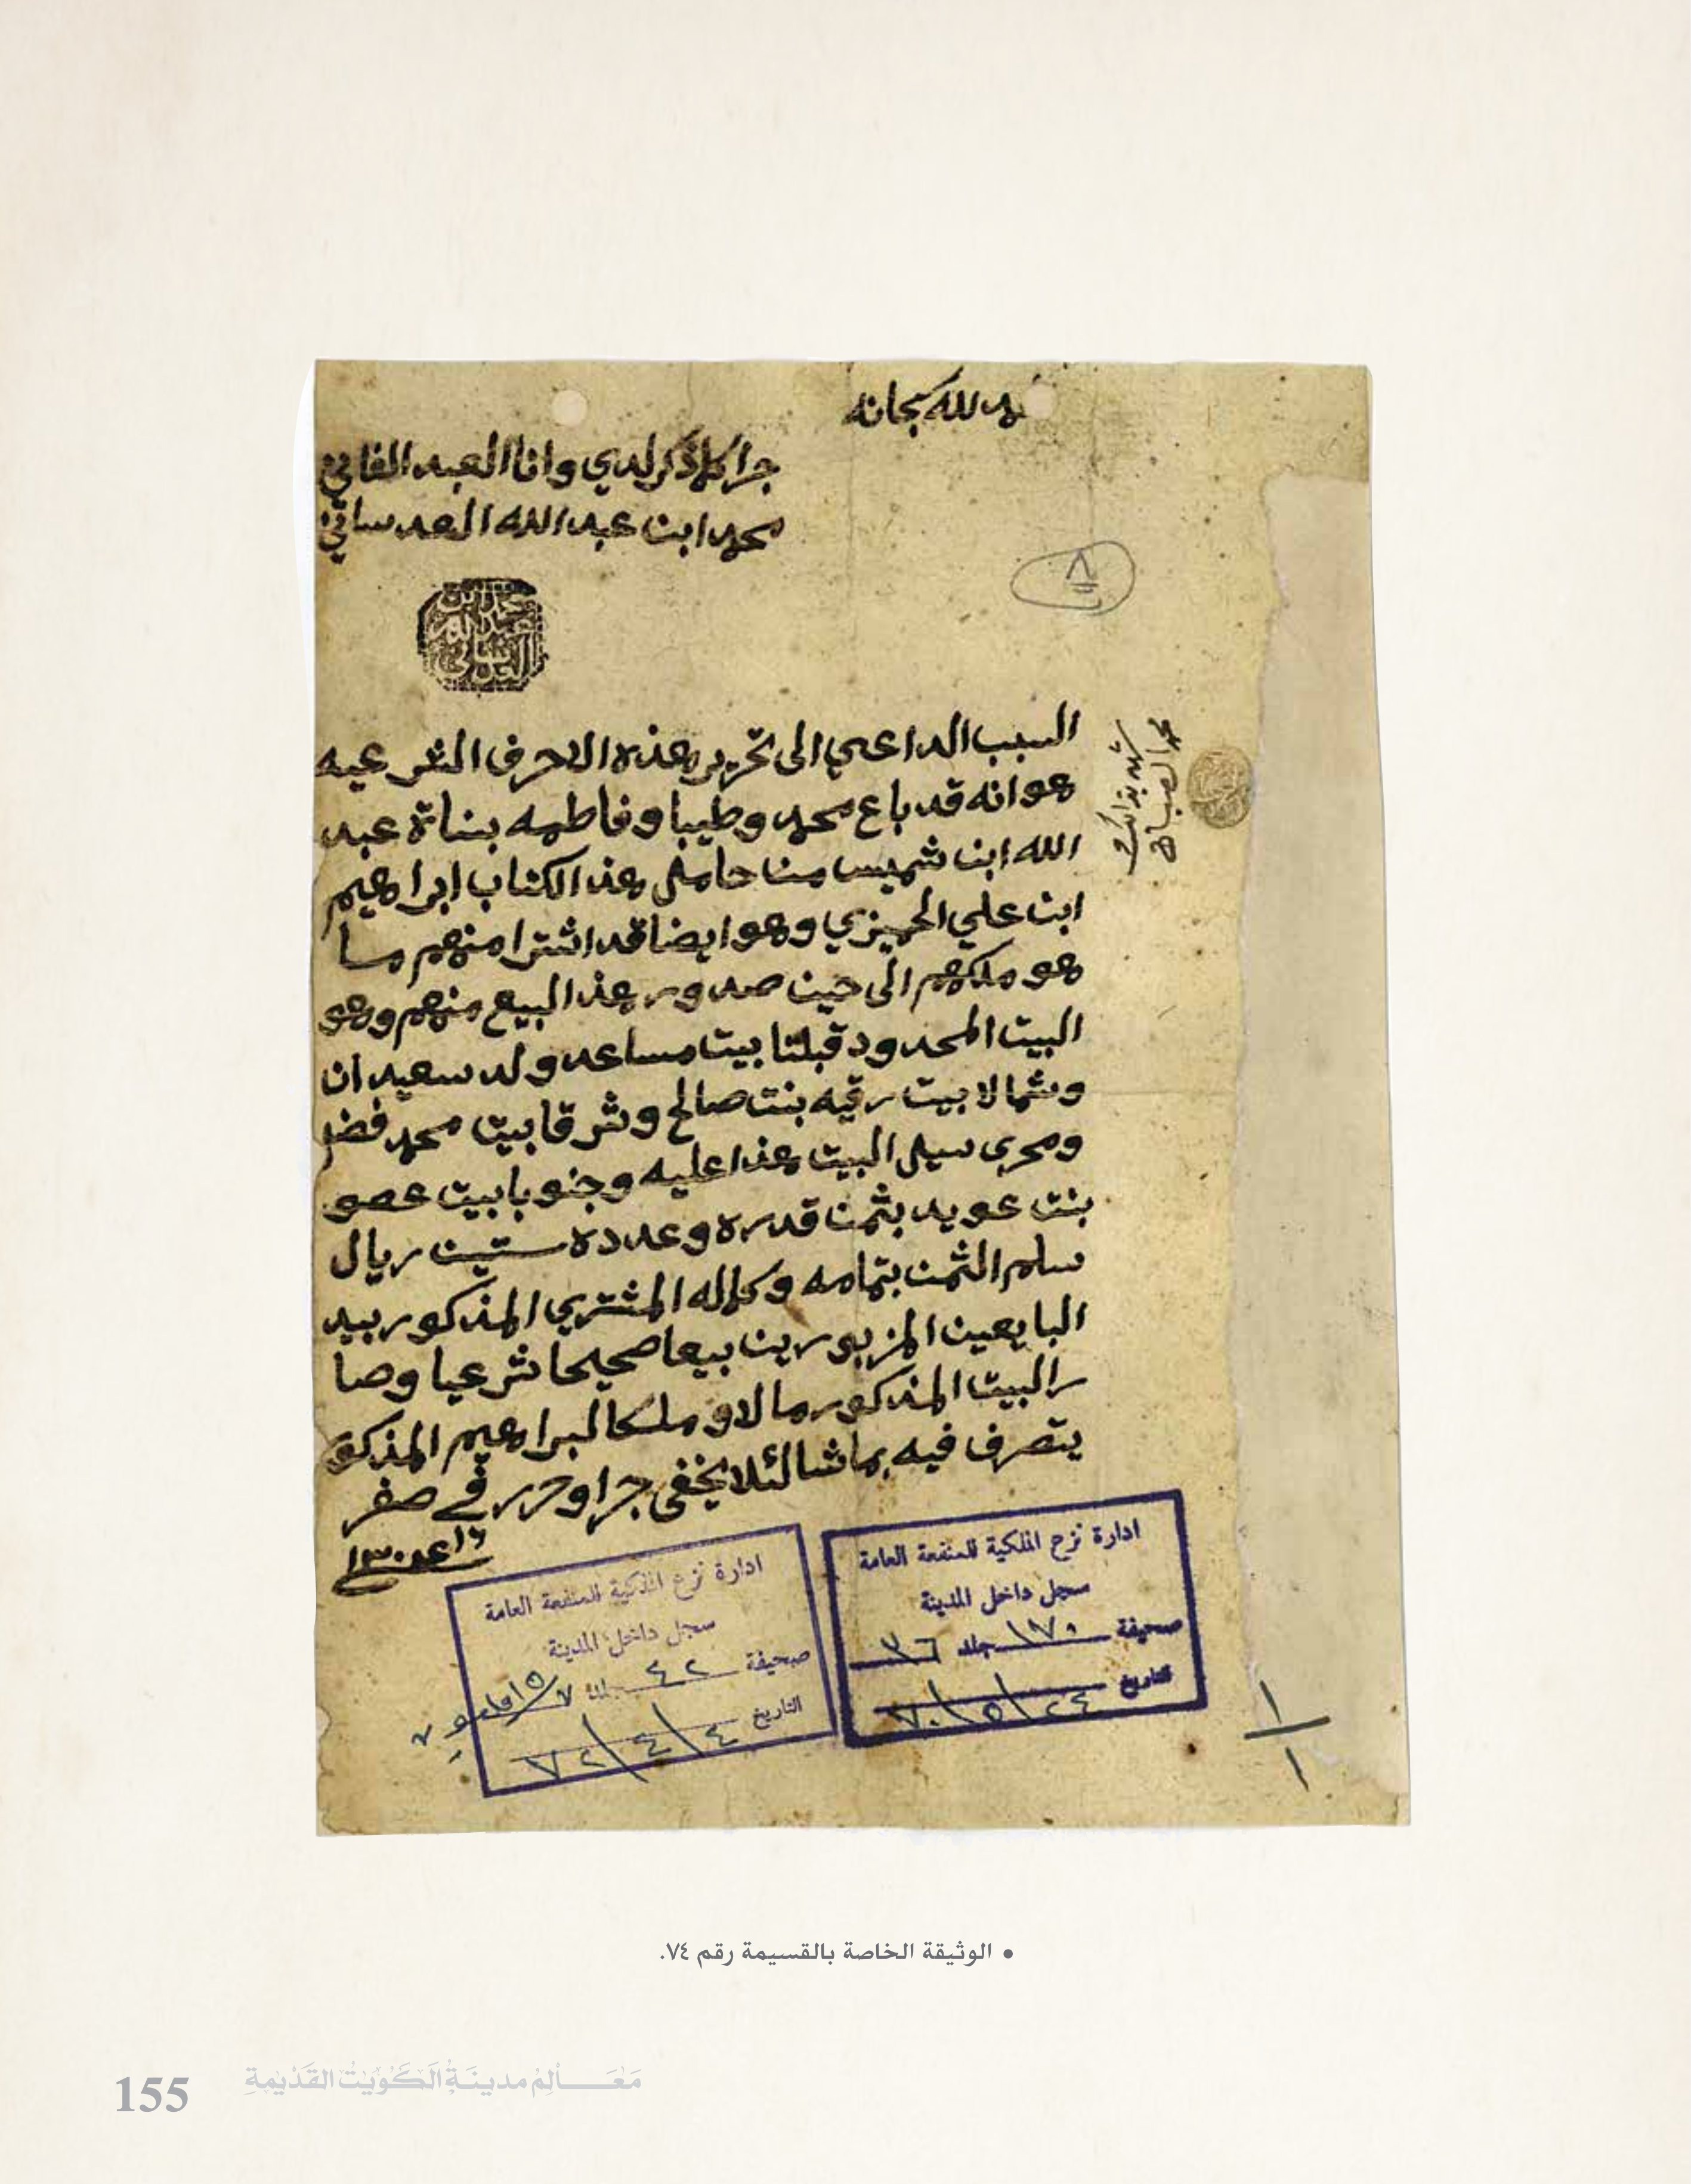 الحمد لله سبحانه
جرا كلما ذكر لدي وانا العبد الفاني
محمد ابن عبدالله العدساني
محمد ابن عبدالله العدساني
٨
السبب الداعي الى تحرير هذه الاحرف الشرعيه
هو انه قد باع محمد وطيبا وفاطمه بناة عبد
الله ابن شميس منا حامل هذا الكتاب ابراهيم
ابن علي الحميزي وهو ايضا قد اشترا منهم ما
هو ملكهم الى حين صدور هذ البيع منهم وهو
البيت المحدود قبلتا بيت مساعد ولد سعيدان
وشمالا بيت رقيه بنت صالح وشرقا بيت محمد فضل
ومجرى سيل البيت هذا عليه وجنوبا بيت
بنت عويد بثمن قدره وعدده ستين ريال
سلم الثمن بتمامه وكماله المشتري المذكور بيد
البايعين المزبورين بيعا صحيحا شرعيا وصا
ر البيت المذكور مالا وملكا لبراهيم المذكو
يتصرف فيه بما شا لئلا يخفى جرا وحرر في صفر
١٦ ١٣٠٤
شهد بذالك
محمد الصباح
ادارة نزع الملكية للمنفعة العامة
سجل داخل المدينة
صحيفة ١٧٠ جلد ٣٦
التاريخ ٢٤/٥/٧٠
ادارة نزع الملكية للمنفعة العامة
سجل داخل المدينة
صحيفة ٤٢ جلد
التاريخ ٤/٤/٧٢
١/١
• الوثيقة الخاصة بالقسيمة رقم ٧٤.
155 مَعَالِم مدينَة الكُوَيت القَدِيمَة